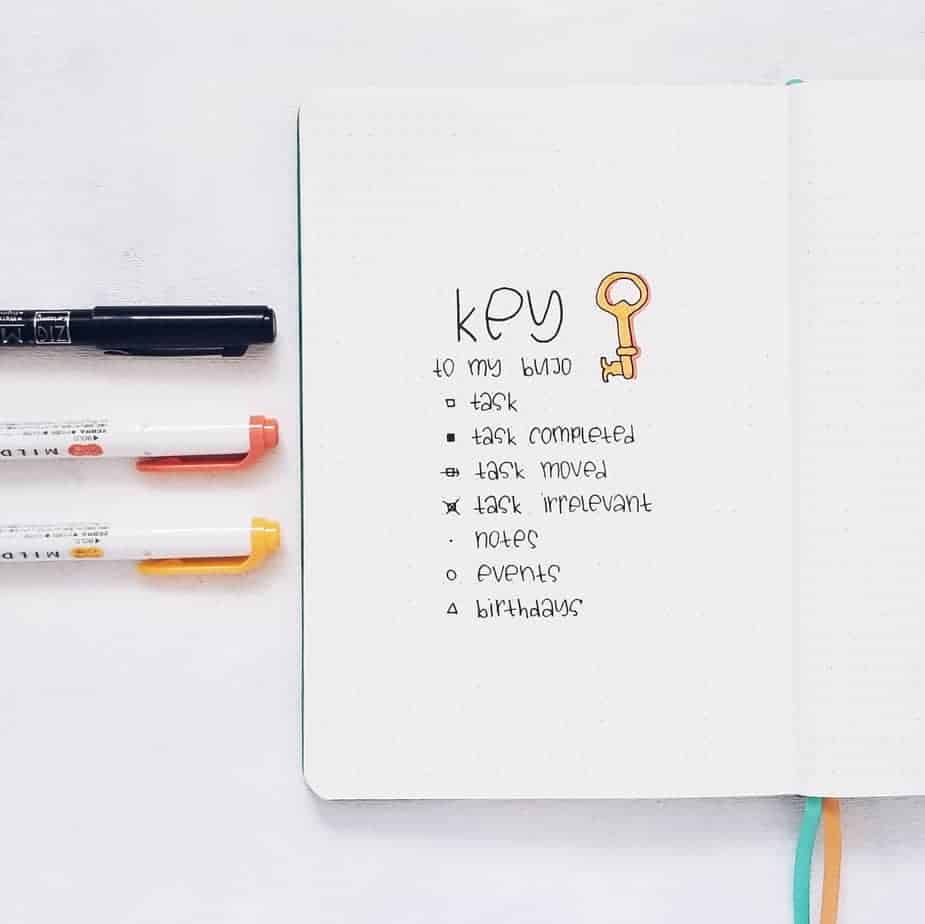 key
to my bujo
task
task completed
task moved
task irrelevant
notes
events
birthdays
ZIG
MILD
MILD